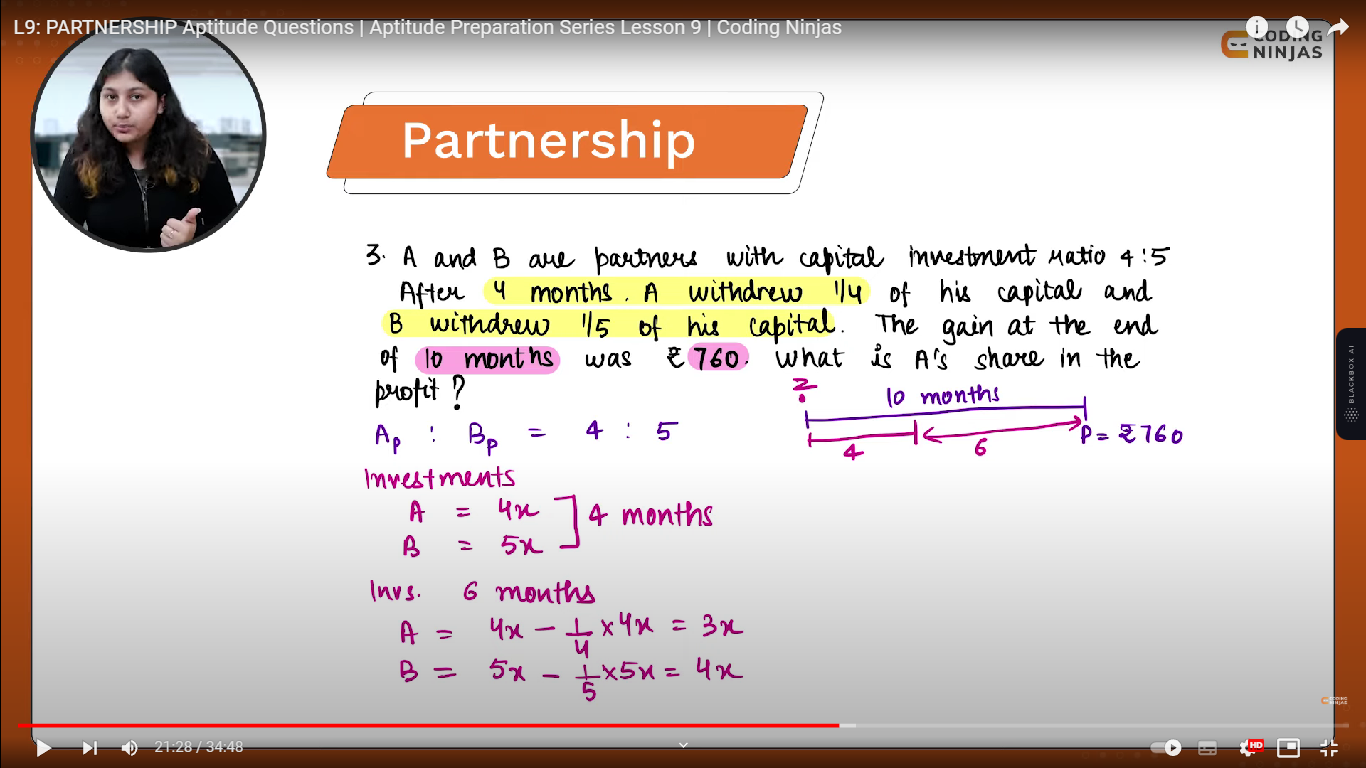 L9: PARTNERSHIP Aptitude Questions | Aptitude Preparation Series Lesson 9 | Coding Ninjas
CODING
NINJAS
Partnership
3. A and B are partners with capital investment ratio 4:5
After 4 months. A withdrew 1/4 of his capital and
B withdrew 1/5 of his capital. The gain at the end
of 10 months was ₹ 760. What is A's share in the
profit ?
2
10 months
4
6
P = ₹760
Ap : Bp = 4 : 5
Investments
A = 4x
B = 5x
4 months
Invs. 6 months
A = 4x - 1/4 x 4x = 3x
B = 5x - 1/5 x 5x = 4x
BLACKBOX AI
CODING
NINJAS
21:28 / 34:48
HD